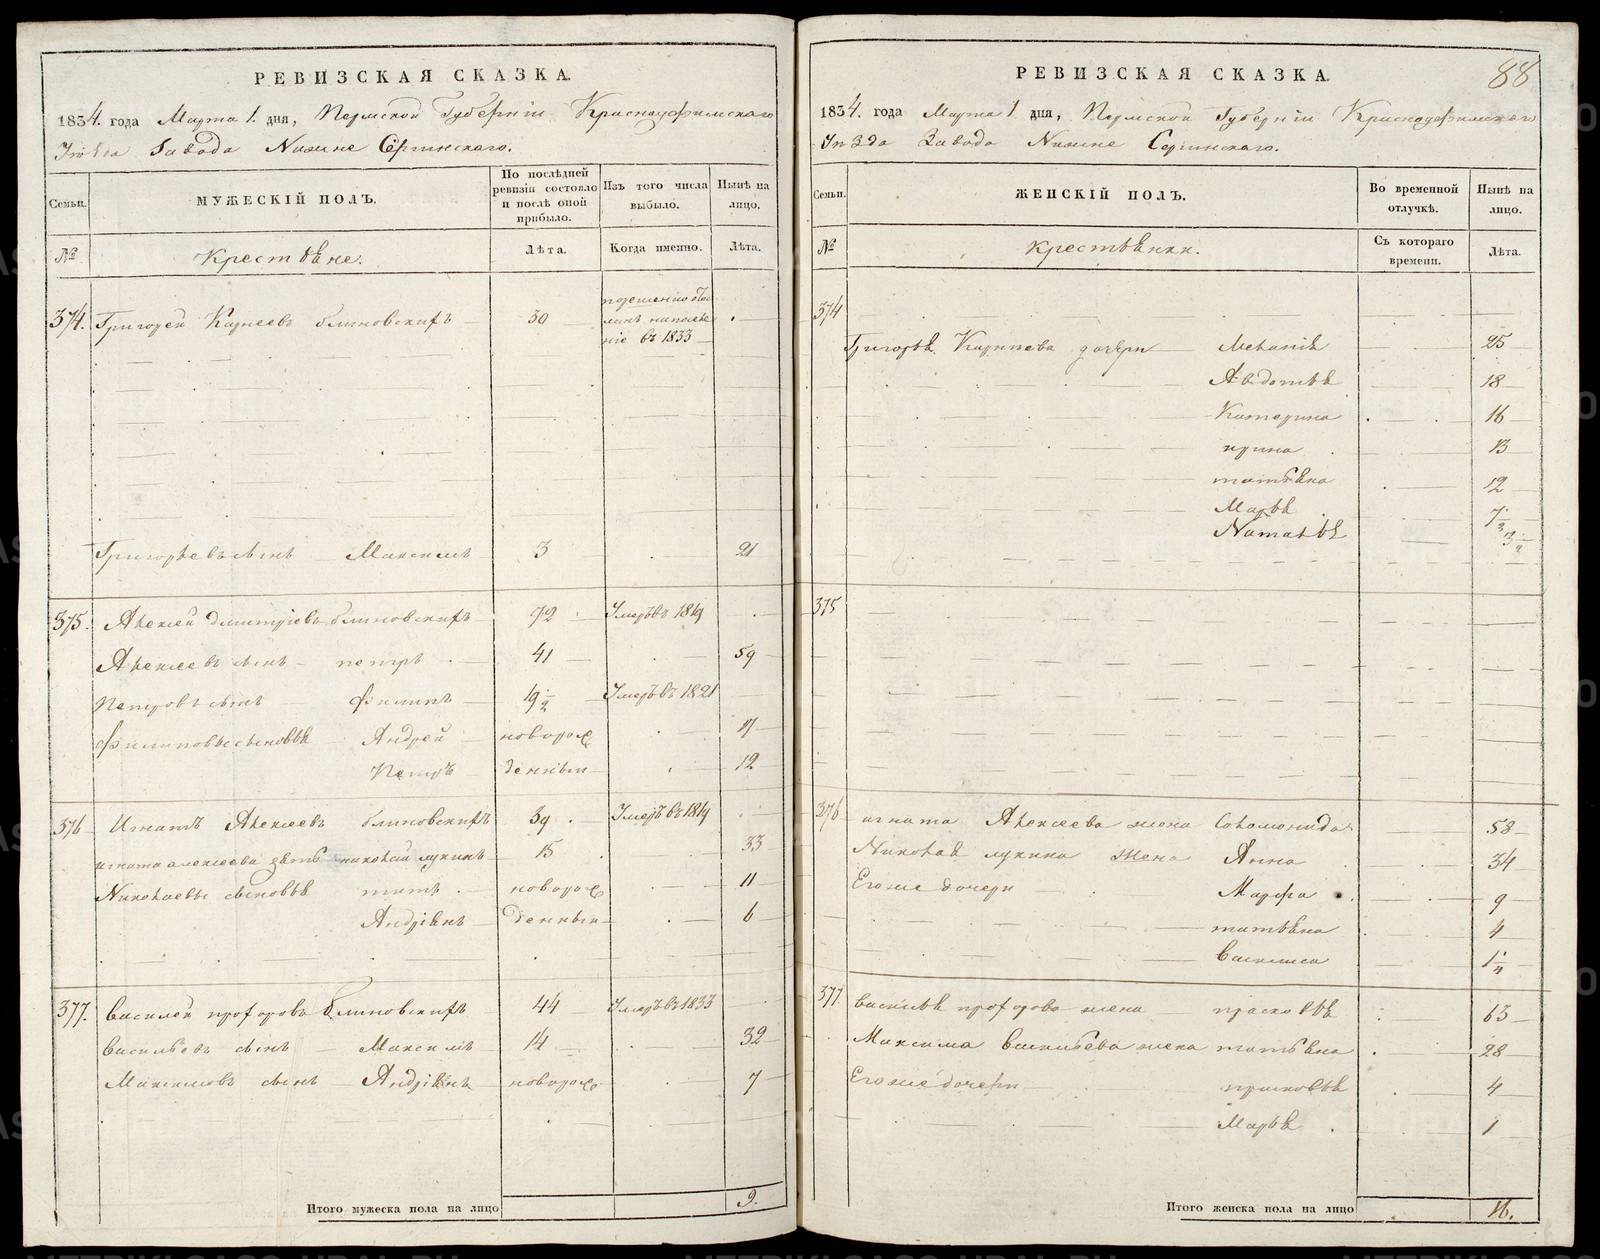 РЕВИЗСКАЯ СКАЗКА.
1834. года Марта 1. дня, Пермской Губернiи Красноуфимскаго
Уѣзда Завода Нижне Сергинскаго.
Семьи.
МУЖЕСКIЙ ПОЛЪ.
По послѣдней ревизiи состояло и послѣ оной прибыло.
Изъ того числа выбыло.
Нынѣ на лицо.
№
Крестьяне.
Лѣта.
Когда именно.
Лѣта.
374. Григорей Карпеевъ блиновскихъ 30
въ 1833
Григорьевъ сынъ Максимъ 3 21
375. Алексей дмитрiевъ блиновскихъ 72 Умеръ въ 1819
Алексеевъ сынъ петръ 41 59
Петровъ сынъ Филипъ 19 1/2 Умеръ въ 1821
Филиповы сыновья Андрей новорож 14
Петръ денныи 12
376 Игнатъ Алексеевъ блиновскихъ 39 Умеръ въ 1819
игната алексеева зять николай лукинъ 15 33
Николаевы сыновья титъ новорож 11
Андрiянъ денныи 6
377. Василей прохоровъ блиновскихъ 44 Умеръ въ 1833
Васильевъ сынъ Максимъ 14 32
Максимовъ сынъ Андрiянъ новорож 7
Итого мужеска пола на лицо 9.
88
РЕВИЗСКАЯ СКАЗКА
1834. года Марта 1 дня, Пермской Губернiи Красноуфимскаго
Уѣзда Завода Нижне Сергинскаго.
Семьи.
ЖЕНСКIЙ ПОЛЪ.
Во временной отлучкѣ.
Нынѣ на лицо.
№
крестьянки.
Съ котораго времени.
Лѣта.
374
Григорья Карпеева дочери Меланiя 25
Авдотья 18
Катерина 16
ирина 13
татьяна 12
Марья 7
Наталья 3
375
376 игната Алексеева жена Соломонида 58
Николая лукина жена Анна 34
Егоже дочери Марфа 9
татьяна 4
Василиса 1
377. Василья прохорова жена прасковья 63
Максима Васильева жена татьяна 28
Егоже дочери прасковья 4
Марья 1
Итого женска пола на лицо 16.